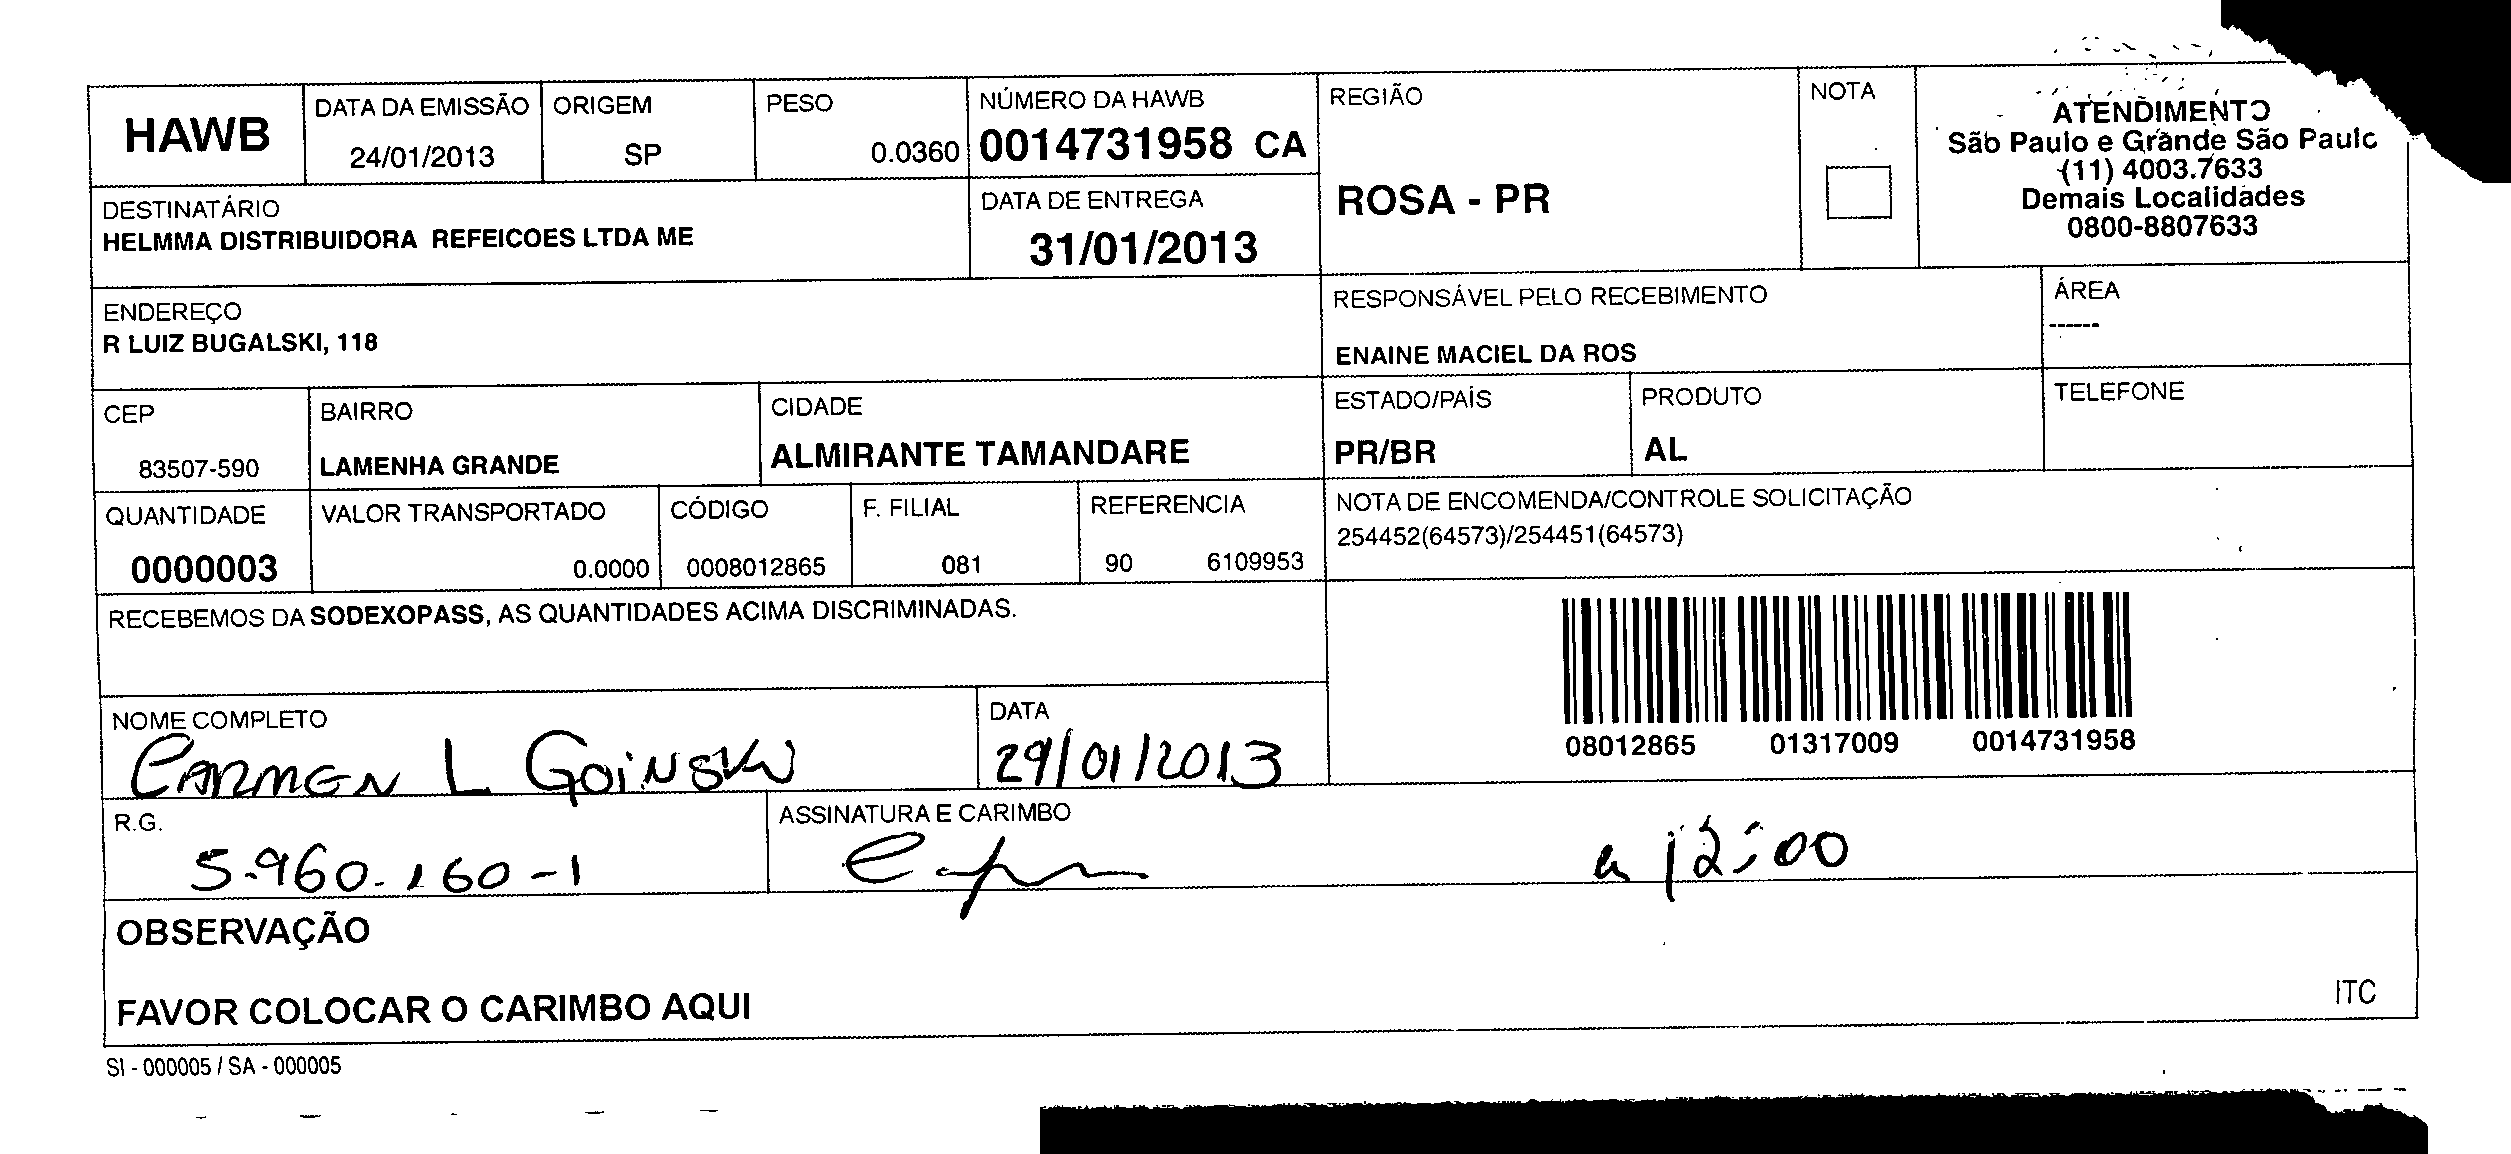 HAWB
DATA DA EMISSÃO
24/01/2013
ORIGEM
SP
PESO
0.0360
NÚMERO DA HAWB
0014731958 CA
REGIÃO
ROSA - PR
NOTA
ATENDIMENTO
São Paulo e Grande São Paulo
(11) 4003.7633
Demais Localidades
0800-8807633
DESTINATÁRIO
HELMMA DISTRIBUIDORA REFEICOES LTDA ME
DATA DE ENTREGA
31/01/2013
ENDEREÇO
R LUIZ BUGALSKI, 118
RESPONSÁVEL PELO RECEBIMENTO
ENAINE MACIEL DA ROS
ÁREA
------
CEP
83507-590
BAIRRO
LAMENHA GRANDE
CIDADE
ALMIRANTE TAMANDARE
ESTADO/PAÍS
PR/BR
PRODUTO
AL
TELEFONE
QUANTIDADE
0000003
VALOR TRANSPORTADO
0.0000
CÓDIGO
0008012865
F. FILIAL
081
REFERENCIA
90 6109953
NOTA DE ENCOMENDA/CONTROLE SOLICITAÇÃO
254452(64573)/254451(64573)
RECEBEMOS DA SODEXOPASS, AS QUANTIDADES ACIMA DISCRIMINADAS.
08012865 01317009 0014731958
NOME COMPLETO
CARMEN L GOINSKI
DATA
29/01/2013
R.G.
5.960.160-1
ASSINATURA E CARIMBO
12:00
OBSERVAÇÃO
FAVOR COLOCAR O CARIMBO AQUI
ITC
SI - 000005 / SA - 000005